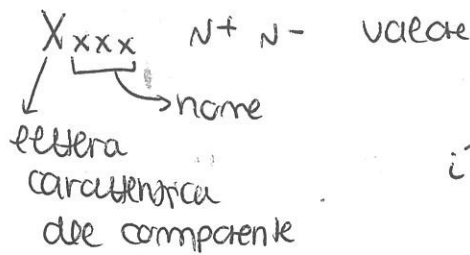 Xxxx N+ N- valore
nome
lettera
caratteristica
del componente
i